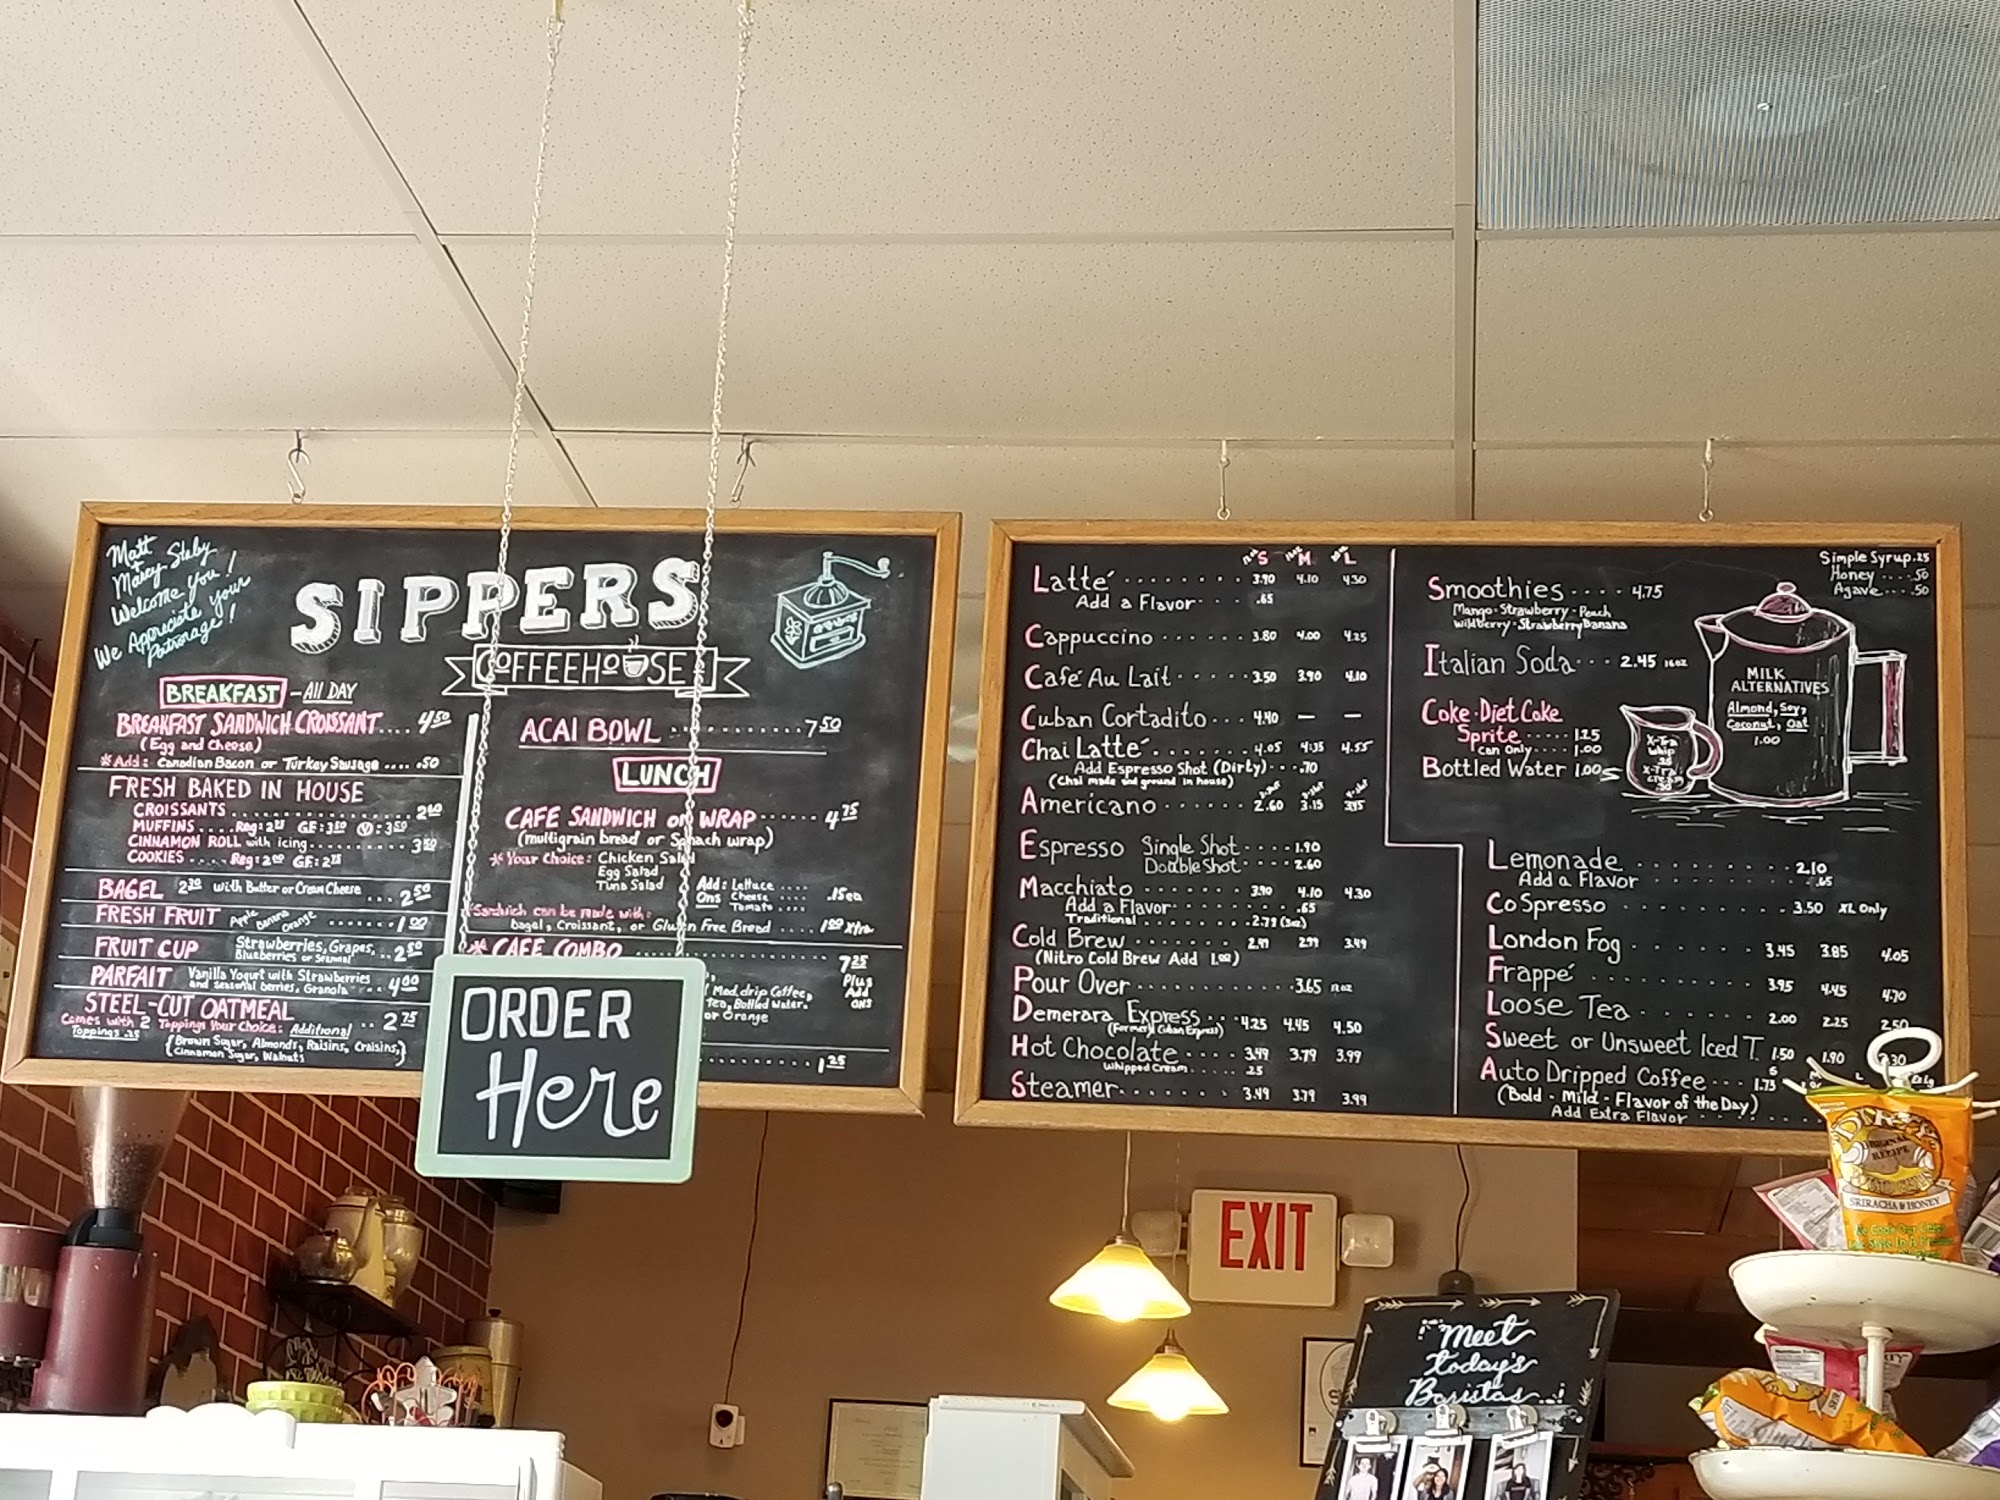 Matt
+ Marcy Staby
Welcome you!
We Appreciate your
Patronage!
SIPPERS
COFFEEHOUSE
BREAKFAST - All DAY
BREAKFAST SANDWICH CROISSANT.... 4 50
(Egg and Cheese)
*Add: Canadian Bacon or Turkey Sausage .... .50
FRESH BAKED IN HOUSE
CROISSANTS 2 60
MUFFINS .... Reg: 2 25 GF: 3 50 V: 3 50
CINNAMON ROLL with icing 3 50
COOKIES .... Reg: 2 00 GF: 2 25
BAGEL 2 30 with Butter or Cream Cheese ... 2 50
FRESH FRUIT Apple Banana Orange 1 00
FRUIT CUP Strawberries, Grapes, Blueberries or Seasonal .. 2 50
PARFAIT Vanilla Yogurt with Strawberries and seasonal berries, Granola ... 4 00
STEEL-CUT OATMEAL .. 2 75
Comes with 2 Toppings Your Choice: Additional Toppings .25
{Brown Sugar, Almonds, Raisins, Craisins,
Cinnamon Sugar, Walnuts}
ACAI BOWL 7 50
LUNCH
CAFE SANDWICH or WRAP 4 75
(multigrain bread or Spinach wrap)
*Your Choice: Chicken Salad
Egg Salad
Tuna Salad
Add: Lettuce ....
Ons Cheese .... .15 ea
Tomato ....
*Sandwich can be made with:
bagel, Croissant, or Gluten Free Bread .... 1 00 Xtra
* CAFE COMBO 7 25
Plus
Add
ons
Med. drip Coffee,
Tea, Bottled Water,
or Orange
1 25
ORDER
Here
12oz S 16oz M 20oz L
Latté 3.90 4.10 4.30
Add a Flavor .65
Cappuccino 3.80 4.00 4.25
Café Au Lait 3.50 3.90 4.10
Cuban Cortadito ... 4.40 — —
Chai Latté 4.05 4.35 4.55
Add Espresso Shot (Dirty) ... .70
(Chai made and ground in house)
Americano 2.60 3.15 3.75
Espresso Single Shot .... 1.90
Double Shot .... 2.60
Macchiato 3.90 4.10 4.30
Add a Flavor .65
Traditional 2.79 (3oz)
Cold Brew 2.49 2.99 3.49
(Nitro Cold Brew Add 1.00)
Pour Over 3.65 12oz
Demerara Express ... 4.25 4.45 4.50
(Formerly Cuban Express)
Hot Chocolate .... 3.49 3.79 3.99
Whipped Cream .25
Steamer 3.49 3.79 3.99
Smoothies .... 4.75
Mango · Strawberry · Peach
Wildberry · Strawberry Banana
Italian Soda ... 2.45 16oz
Coke · Diet Coke
Sprite ..... 1.25
1 can Only .... 1.00
Bottled Water 1.00
Simple Syrup .25
Honey .... .50
Agave .... .50
MILK
ALTERNATIVES
Almond, Soy,
Coconut, Oat
1.00
X-Tra
Whip
.25
X-Tra
Cream
.50
Lemonade 2.10
Add a Flavor .65
CoSpresso 3.50 XL Only
London Fog 3.45 3.85 4.05
Frappé 3.95 4.45 4.70
Loose Tea 2.00 2.25 2.50
Sweet or Unsweet Iced T. 1.50 1.90
Auto Dripped Coffee ... 1.73
(Bold · Mild · Flavor of the Day)
Add Extra Flavor
EXIT
Meet
today's
Baristas...!
ORIGINAL
RECIPE
SRIRACHA & HONEY